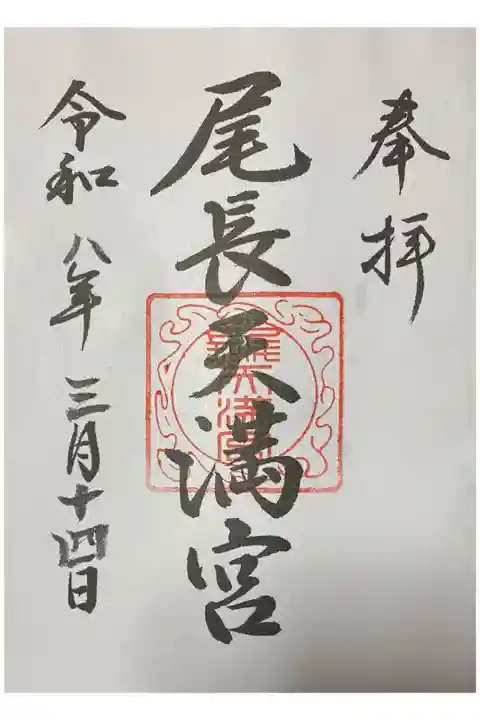 奉拝
尾長天満宮
令和八年三月十四日